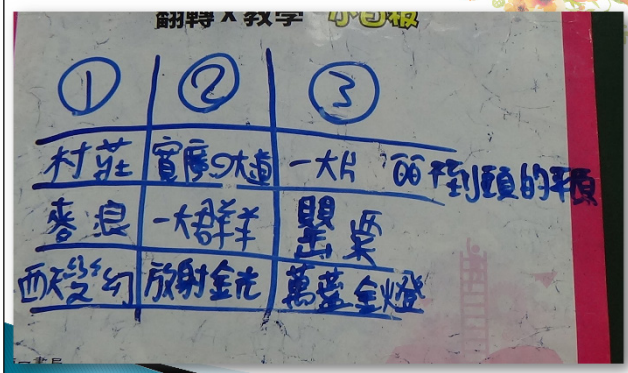 翻轉 X 教學 小白板
① ② ③
村莊 寬廣の大道 一大片 不到頭的平頂
麥浪 一大群羊 罌粟
西天變幻 放射金光 萬盞金燈
書局